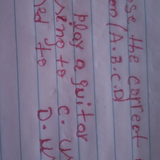 se the correct
on (A.B.C.D
play a guitar
sing to C. U
ed to D. N